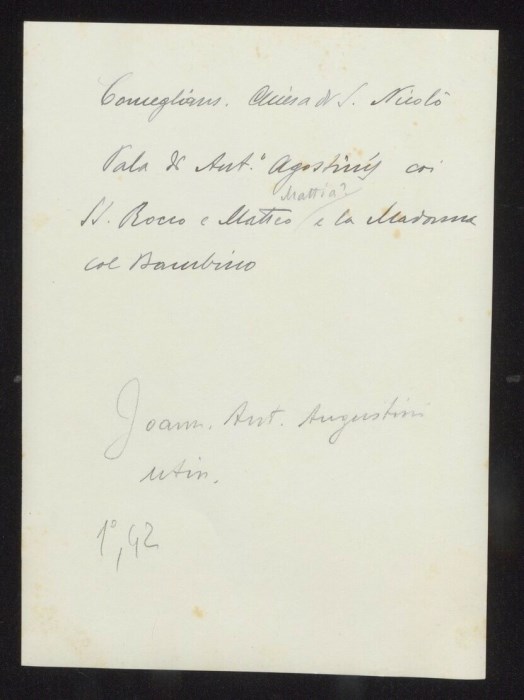 Comeglians. Chiesa di S. Nicolò
Pala di Ant.º Agostinis coi
Mattia?
SS. Rocco e Matteo e la Madonna
col Bambino
Joann. Ant. Augustini
utin.
1º,42